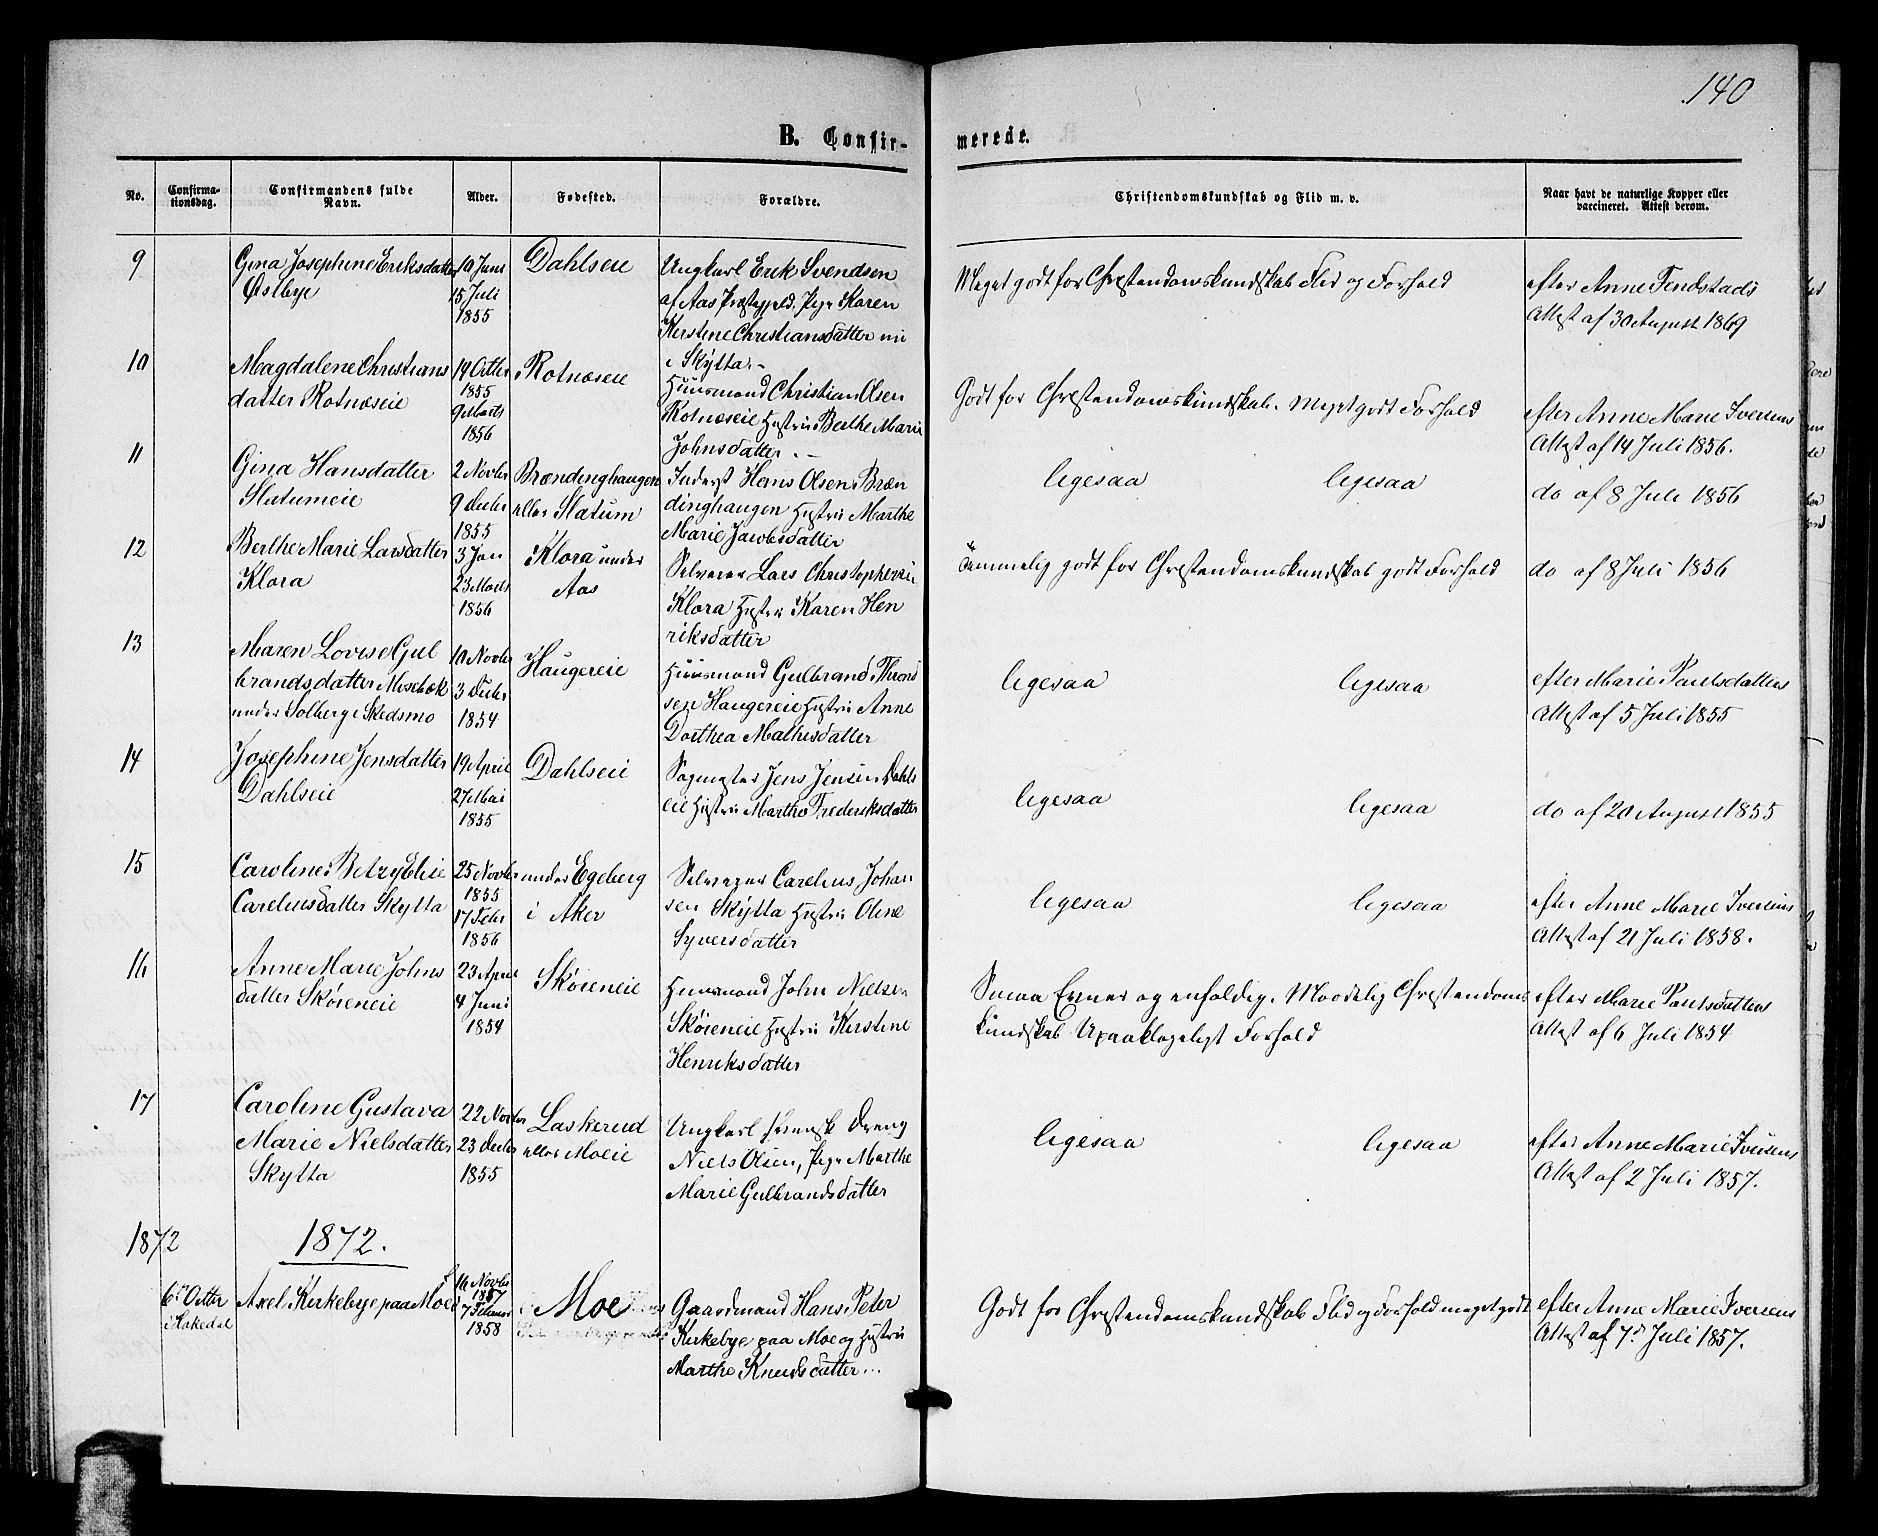 140
B. Confir-
merede.
No.
Confirma-
tionsdag.
Confirmandens fulde
Navn.
Alder.
Fødested.
Forældre.
Christendomskundskab og Flid m. v.
Naar havt de naturlige Kopper eller
vaccineret. Attest derom.
9
Gina Josephine Eriksdatter
Østbye
10 Juni
15 Juli
1855
Dahlseie
Ungkarl Erik Svendsen
af Aas Præstegjeld. Pige Karen
Kirstine Christiansdatter nu
i Skytta.-
Meget godt for Christendomskundskab Flid og Forhold
efter Anne Fendstads
Attest af 30 August 1869
10
Magdalene Christians
datter Rotnæseie
14 Octbr
1855
9 Marts
1856
Rotnæseie
Huusmand Christian Olsen
Rotnæseie Hustru Berthe Marie
Johnsdatter.-
Godt for Christendomskundskab. Meget godt Forhold
efter Anne Marie Iversens
Attest af 14 Juli 1856.
11
Gina Hansdatter
Slatumeie
2 Novbr
9 Decbr
1855
Brændinghaugen
eller Slatum
Inderst Hans Olsen Bræn
dinghaugen Hustru Marthe
Marie Jacobsdatter
ligesaa ligesaa
do af 8 Juli 1856
12
Berthe Marie Larsdatter
Klora
3 Jan
23 Marts
1856
Klora under
Aas
Selveier Lars Christophersen
Klora Hustru Karen Hen
riksdatter
Temmelig godt for Christendomskundskab godt Forhold
do af 8 Juli 1856
13
Maren Lovise Gul
brandsdatter Misebæk
under Solberg i Skedsmo
10 Novbr
3 Decbr
1854
Haugereie
Huusmand Gulbrand Thrond
sen Haugereie Hustru Anne
Dorthea Mathisdatter
ligesaa ligesaa
efter Marie Paulsdatters
Attest af 5 Juli 1855
14
Josephine Jensdatter
Dahlseie
19 April
27 Mai
1855
Dahlseie
Sagmester Jens Jensen Dahls
eie Hustru Marthe Frederiksdatter
ligesaa ligesaa
do af 20 August 1855
15
Caroline Betzy Elise
Careliusdatter Skytta
25 Novbr
1855
17 Febr
1856
under Egeberg
i Aker
Selveier Carelius Johan
sen Skytta Hustru Oline
Syversdatter
ligesaa ligesaa
efter Anne Marie Iversens
Attest af 21 Juli 1858.
16
Anne Marie Johns
datter Skøieneie
23 April
4 Juni
1854
Skøieneie
Huusmand John Nielsen
Skøieneie Hustru Kirstine
Henriksdatter
Smaa Evner og enfoldig. Maadelig Christendoms
kundskab Upaaklageligt Forhold
efter Marie Paulsdatters
Attest af 6 Juli 1854
17
Caroline Gustava
Marie Nielsdatter
Skytta
22 Novbr
23 Decbr
1855
Laskerud
eller Moeie
Ungkarl svensk Dreng
Niels Olsen, Pige Marthe
Marie Gulbrandsdatter
ligesaa ligesaa
efter Anne Marie Iversens
Attest af 2 Juli 1857.
1872
1872.
6te Octbr
i Hakedal
Axel Kirkebye paa Moe
16 Novbr
1857
7 Februar
1858
Moe
Gaardmand Hans Peter
Kirkebye paa Moe og Hustru
Marthe Knudsdatter...
Godt for Christendomskundskab Flid og Forhold meget godt
efter Anne Marie Iversens
Attest af 7de Juli 1857.